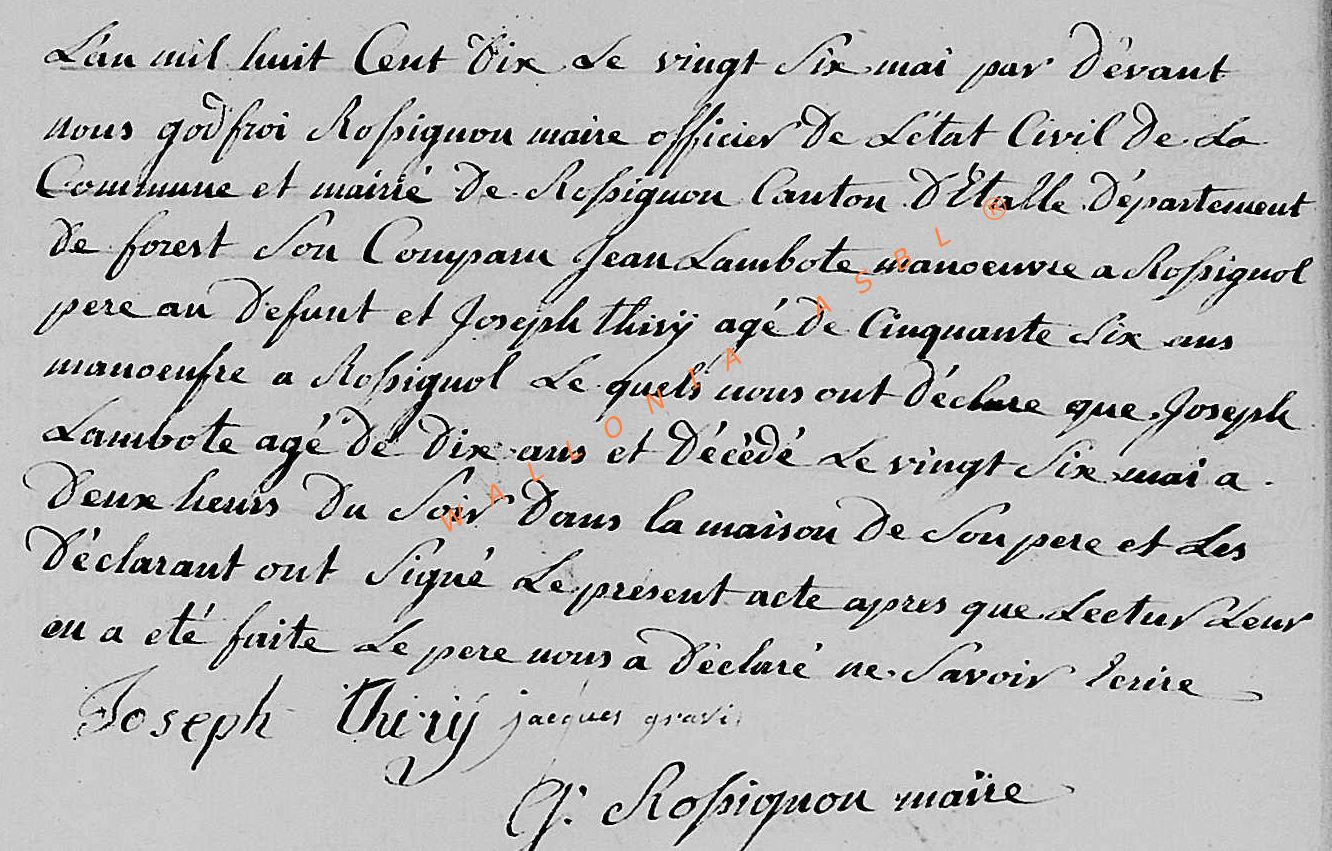 L'an mil huit Cent Dix Le vingt Six mai par Dévant
nous godfroi Rossignon maire officier De L'état Civil De La
Commune et mairié De Rossignon Canton D'Étalle Département
De forest Son Comparu Jean Lambote manoeuvre a Rossignol
pere au Defunt et Joseph thirÿ agé De Cinquante Six ans
manoeufre a Rossignol Le quels nous ont Déclare que Joseph
Lambote agé De Dix ans et Décédé Le vingt Six mai a
Deux heurs Du Soir Dans la maison De Son pere et Les
Déclarant ont Signé Le present acte apres que Lectur Leur
en a eté faite Le pere nous a Déclaré ne Savoir Ecrire
Joseph thirÿ jacques
G. Rossignon maire
WALLONIA ASBL ®